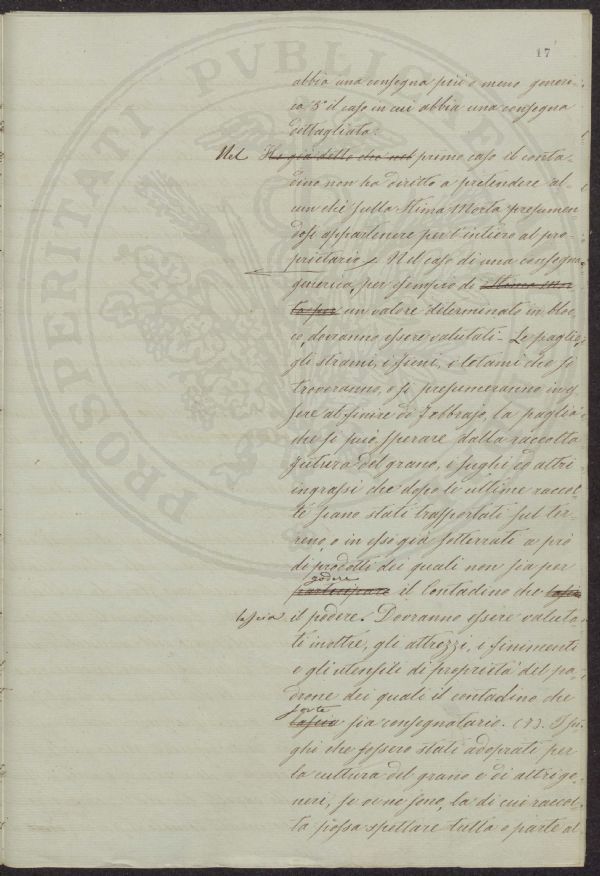 17
abbia una consegna più o meno generi-
ca 3° il caso in cui abbia una consegna
dettagliata.
Nel Ho già detto che nel primo caso il conta-
dino non ha diritto a pretendere al-
cun chè sulla Stima Morta presumen
dosi appartenere per l'intiero al pro
prietario. Nel caso di una consegna
generica, per esempio di Stima Mor
ta per un valore determinato in bloc-
co, dovranno essere valutati. Le paglie,
gli strami, i fieni, i letami che si
troveranno, o si presumeranno in es
sere al finire di Febbrajo, la paglia
che si può sperare dalla raccolta
futura del grano, i sughi ed altri
ingrassi che dopo le ultime raccol
te siano stati trasportati sul ter-
reno, o in esso già sotterrati a prò
di prodotti dei quali non sia per
godere
partecipare il Contadino che lascia
lascia il podere. Dovranno essere valuta-
ti inoltre, gli attrezzi, i finimenti
e gli utensili di proprietà del pa-
drone dei quali il contadino che
sorte
lascia sia consegnatario. (7). I su-
ghi che fossero stati adoprati per
la cultura del grano e di altri ge-
neri, se ve ne sono, la di cui raccol-
ta possa spettare tutta o parte al
PROSPERITATI PVBLICAE